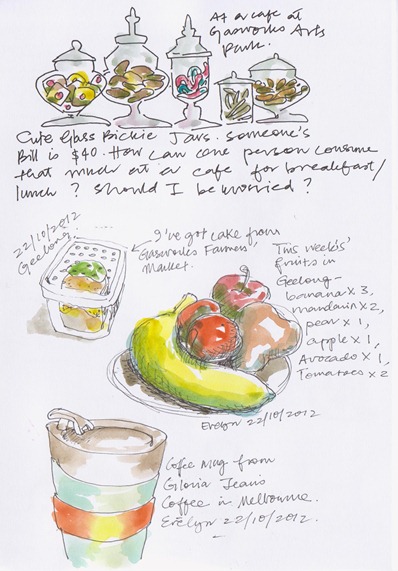 At a cafe at
Gasworks Arts
Park.
Cute Glass Bickie Jars. Someone's
Bill is $40. How can one person consume
that much at a cafe for breakfast/
lunch? Should I be worried?
22/10/2012
Geelong
I've got cake from
Gasworks Farmers'
Market.
This week's'
fruits in
Geelong-
banana x 3,
mandarin x 2,
pear x 1,
apple x 1,
Avocado x 1,
Tomatoes x 2
Evelyn 22/10/2012
Coffee Mug from
Gloria Jean's
Coffee in Melbourne.
Evelyn 22/10/2012.